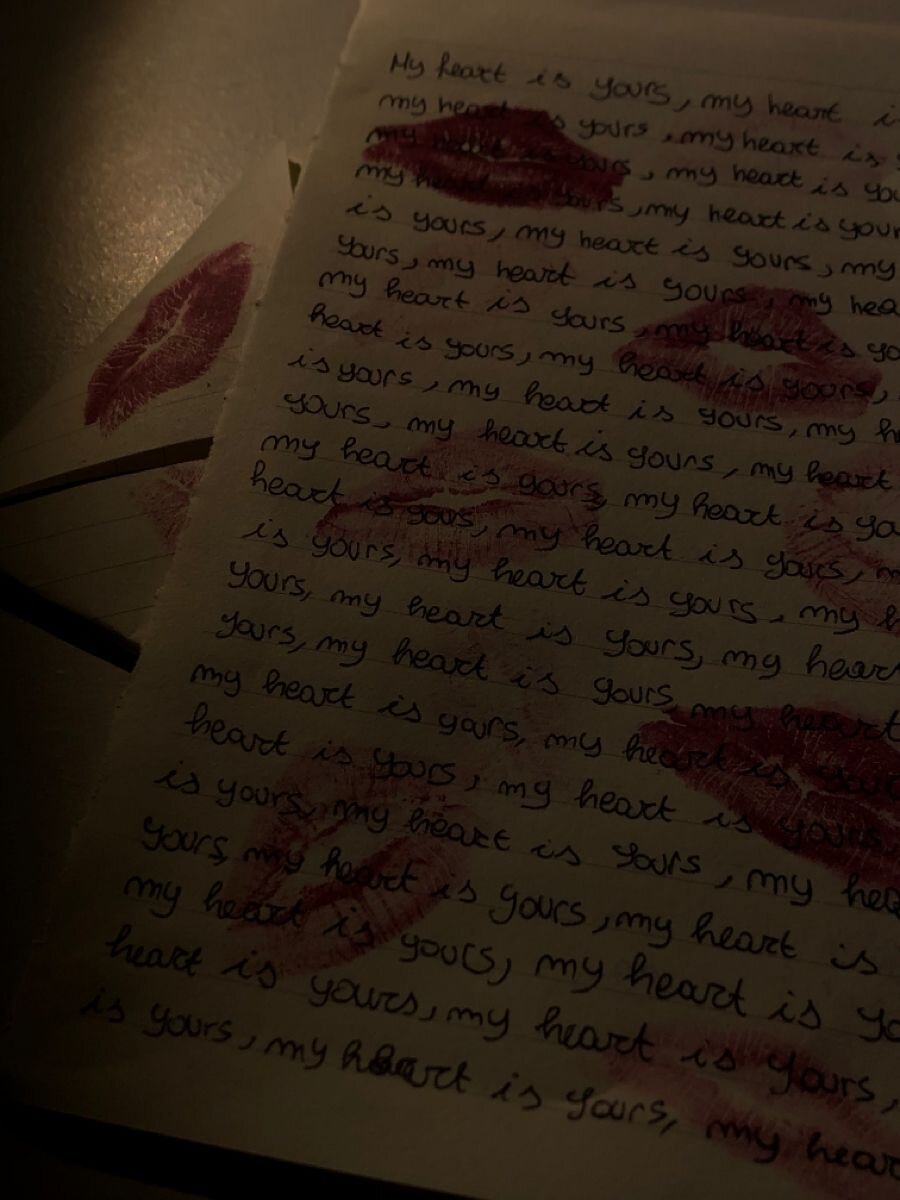 My heart is yours, my heart
my heart is yours, my heart is
my heart is yours, my heart is
my heart is yours, my heart is
is yours, my heart is yours, my
yours, my heart is yours, my
my heart is yours, my heart is
heart is yours, my heart is yours,
is yours, my heart is yours, my
yours, my heart is yours, my heart
my heart is yours, my heart is
heart is yours, my heart is yours,
is yours, my heart is yours, my
yours, my heart is yours, my heart
yours, my heart is yours, my heart
my heart is yours, my heart is
heart is yours, my heart is yours,
is yours, my heart is yours, my
yours, my heart is yours, my heart is
my heart is yours, my heart is
heart is yours, my heart is yours,
is yours, my heart is yours, my